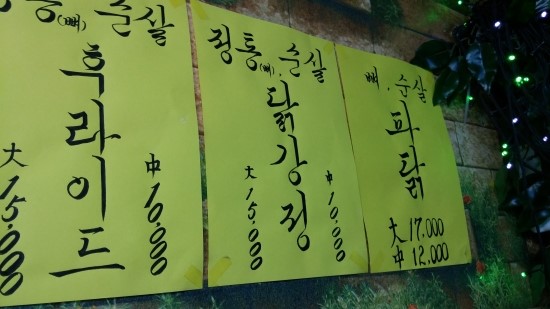 정통(뼈)순살
후라이드
大 15.000
中 10.000
정통(뼈).순살
닭강정
大 15.000
中 10.000
뼈.순살
파닭
大 17.000
中 12.000